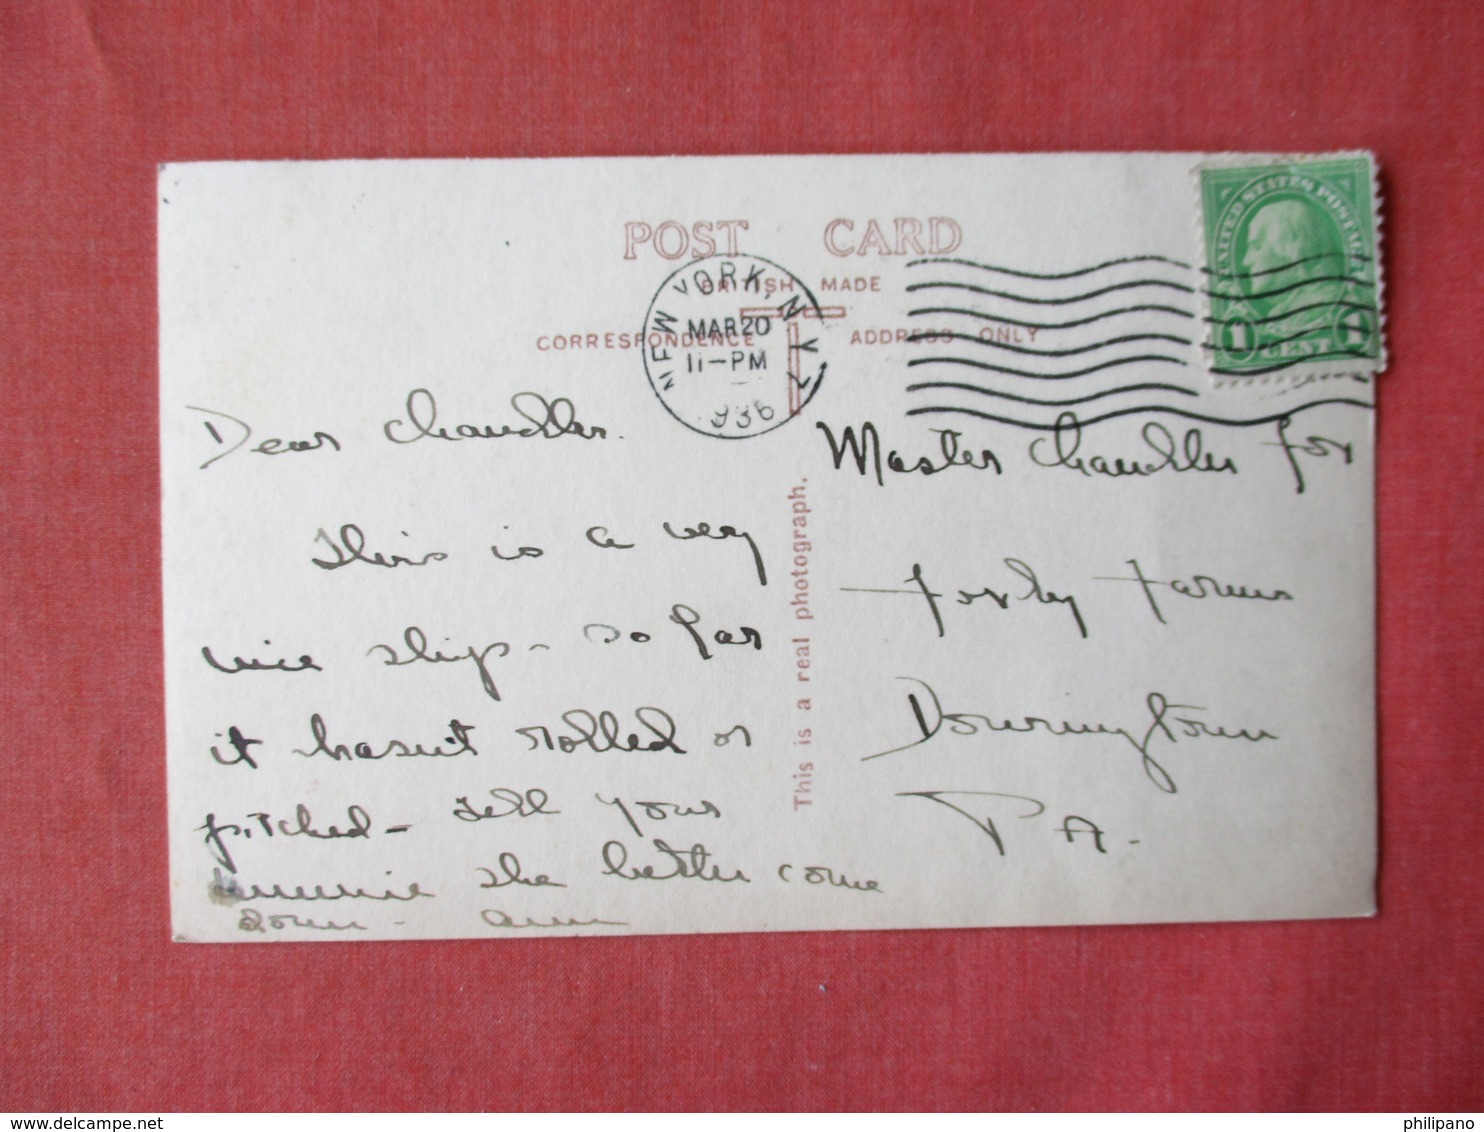 POST CARD
BRITISH MADE
CORRESPONDENCE ADDRESS ONLY
NEW YORK, N.Y.
MAR 20
11-PM
1936
UNITED STATES POSTAGE
1 CENT 1
Dear Chandler.
This is a very
nice ship - so far
it hasn't rolled or
pitched - tell your
she better come
down - Ann
This is a real photograph.
Master Chandler Fox
Foxley Farms
Downingtown
PA.
philipano